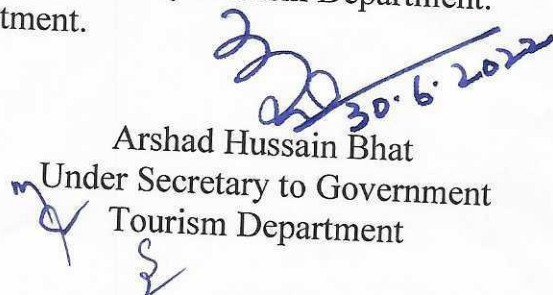 Department.
tment.
30.6.2022
Arshad Hussain Bhat
Under Secretary to Government
Tourism Department